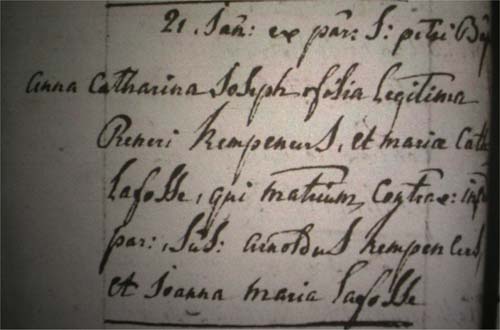 21. Jan: ex par: S: petri
anna Catharina Joseph filia Legitima
Reneri Kempeneurs, et mariæ Cath
Lafosse, qui matrium, Contrax: inf
par:, Sus: arnoldus Kempeneurs
et Joanna maria Lafosse